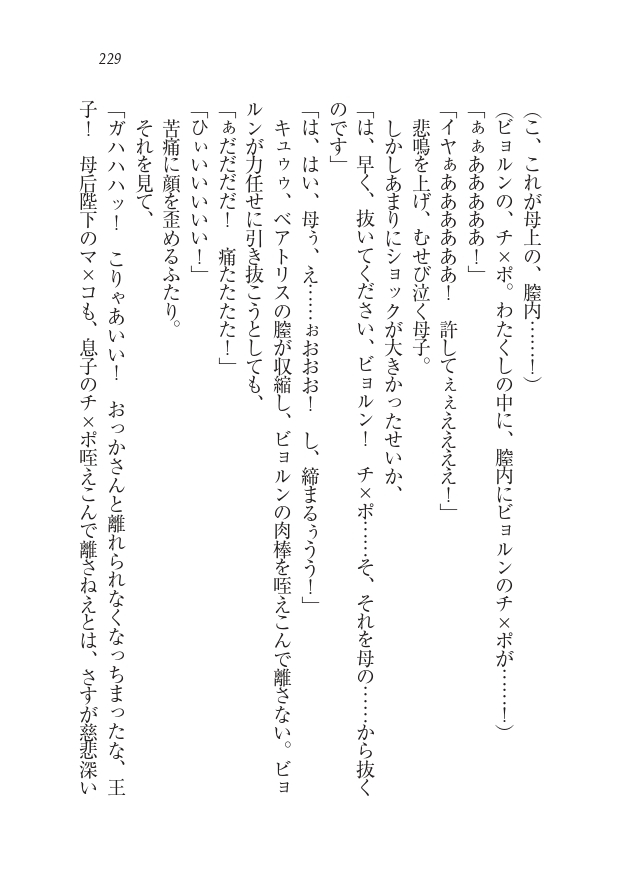 229
(こ、これが母上の、膣内……！)
(ビョルンの、チ×ポ。わたくしの中に、膣内にビョルンのチ×ポが……！)
「ぁぁああああ！」
「イヤぁああああああ！　許してぇぇえええええ！」
悲鳴を上げ、むせび泣く母子。
しかしあまりにショックが大きかったせいか、
「は、早く、抜いてください、ビョルン！　チ×ポ……そ、それを母の……から抜く
のです」
「は、はい、母ぅ、え……ぉおおお！　し、締まるぅうう！」
キュゥゥ、ベアトリスの膣が収縮し、ビョルンの肉棒を咥えこんで離さない。ビョ
ルンが力任せに引き抜こうとしても、
「ぁだだだだ！　痛たたたた！」
「ひぃいいいいい！」
苦痛に顔を歪めるふたり。
それを見て、
「ガハハハッ！　こりゃあいい！　おっかさんと離れられなくなっちまったな、王
子！　母后陛下のマ×コも、息子のチ×ポ咥えこんで離さねえとは、さすが慈悲深い